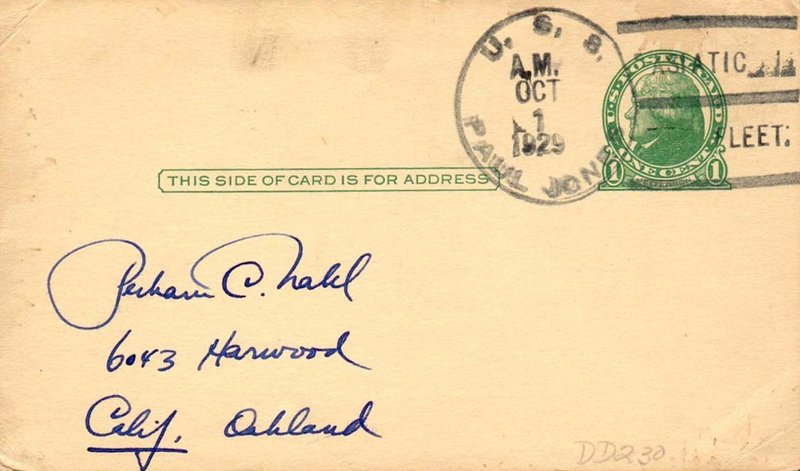 U. S. S.
PAUL JONES
A.M.
OCT
1
1929
ASIATIC
FLEET.
U.S. POSTAL CARD
1 ONE CENT 1
JEFFERSON
THIS SIDE OF CARD IS FOR ADDRESS
Perham C. Nahl
6043 Harwood
Calif. Oakland
DD230